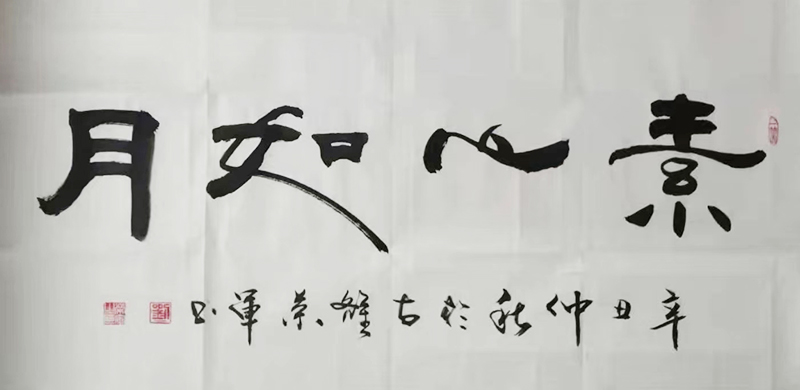 素心如月
辛丑仲秋於古雒荣军书